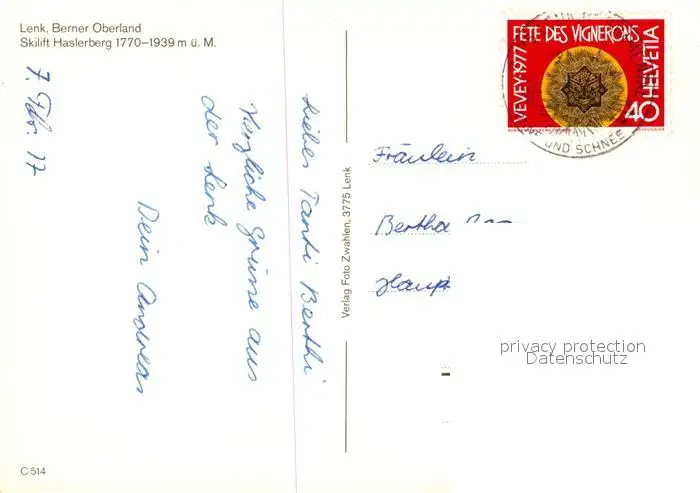 Lenk, Berner Oberland
Skilift Haslerberg 1770–1939 m ü. M.
7. Febr. 77
Liebes Tanti Berthi
Herzliche Grüsse aus
der Lenk
Dein Andreas
Verlag Foto Zwahlen, 3775 Lenk
C 514
FÊTE DES VIGNERONS
VEVEY·1977
HELVETIA
40
UND SCHNEE
Fräulein
Bertha
Haupt
privacy protection
Datenschutz